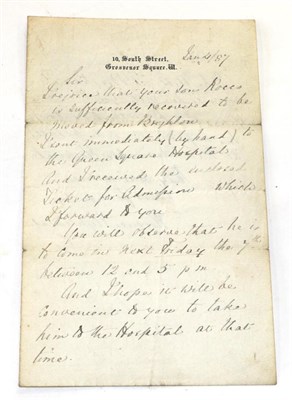 10, South Street,
Grosvenor Square. W.
Jan 4/87
Sir
I rejoice that your son Rocco
is sufficiently recovered to be
moved from Brighton
I sent immediately (by hand) to
the Queen Square Hospital
And I received the inclosed
Ticket for Admission which
I forward to you
You will observe that he is
to come in next Friday the 7th
between 12 and 5 p.m.
And I hope it will be
convenient to you to take
him to the Hospital at that
time.